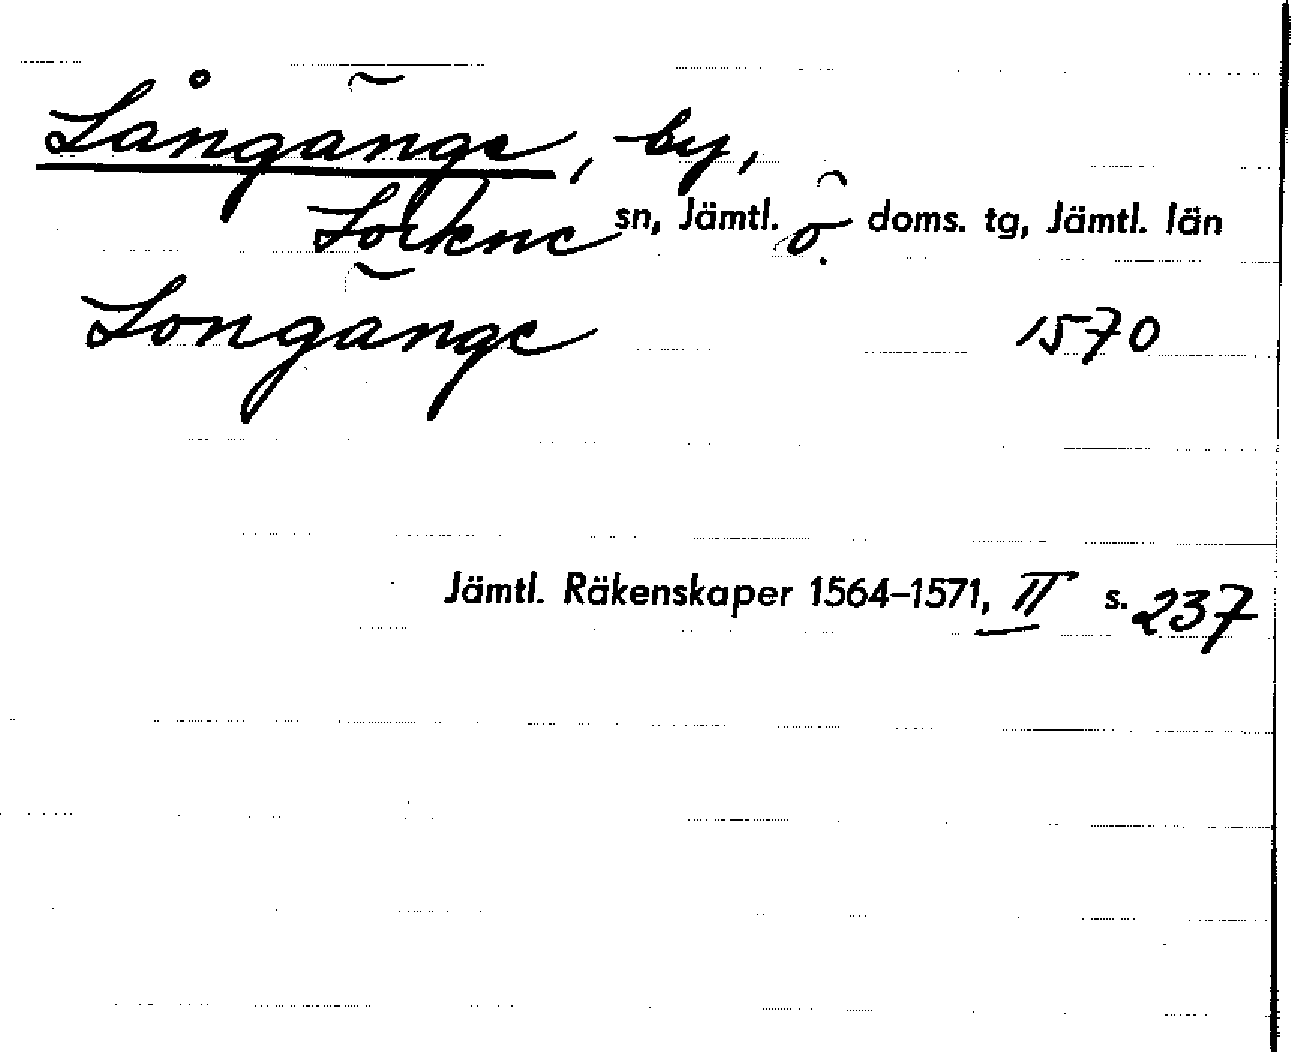 Långänge, by,
Lockne sn, Jämtl. ö. doms. tg, Jämtl. län
Longänge 1570
Jämtl. Räkenskaper 1564–1571, II s. 237